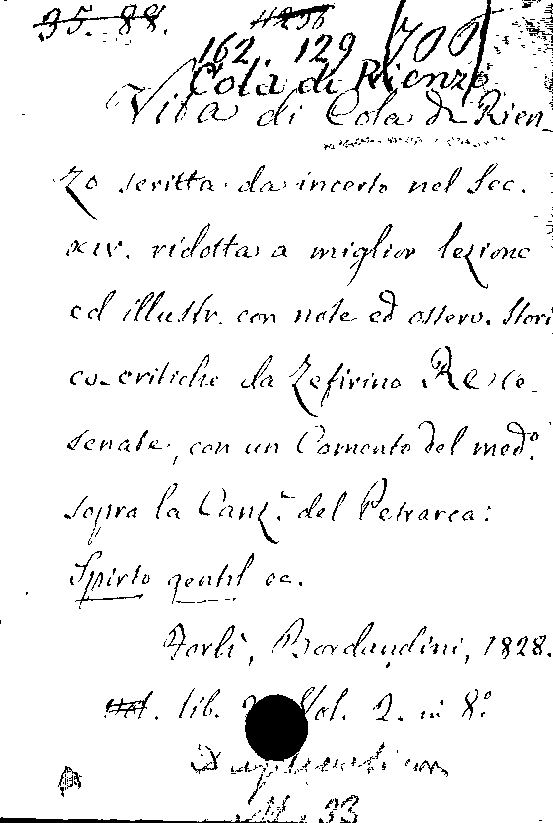 35. 88. 4236
162. 129 700
Cola di Rienzo
Vita di Cola di Rien-
zo scritta da incerto nel Sec.
XIV. ridotta a miglior lezione
ed illustr. con note ed osserv. stori
co-critiche da Zefirino Re Ce-
senate, con un Comento del med.º
sopra la Canz.ᵉ del Petrarca:
Spirto gentil ec.
Forlì, Bordandini, 1828.
lib. 2. Vol. 2. in 8.º
Duplicatum
33